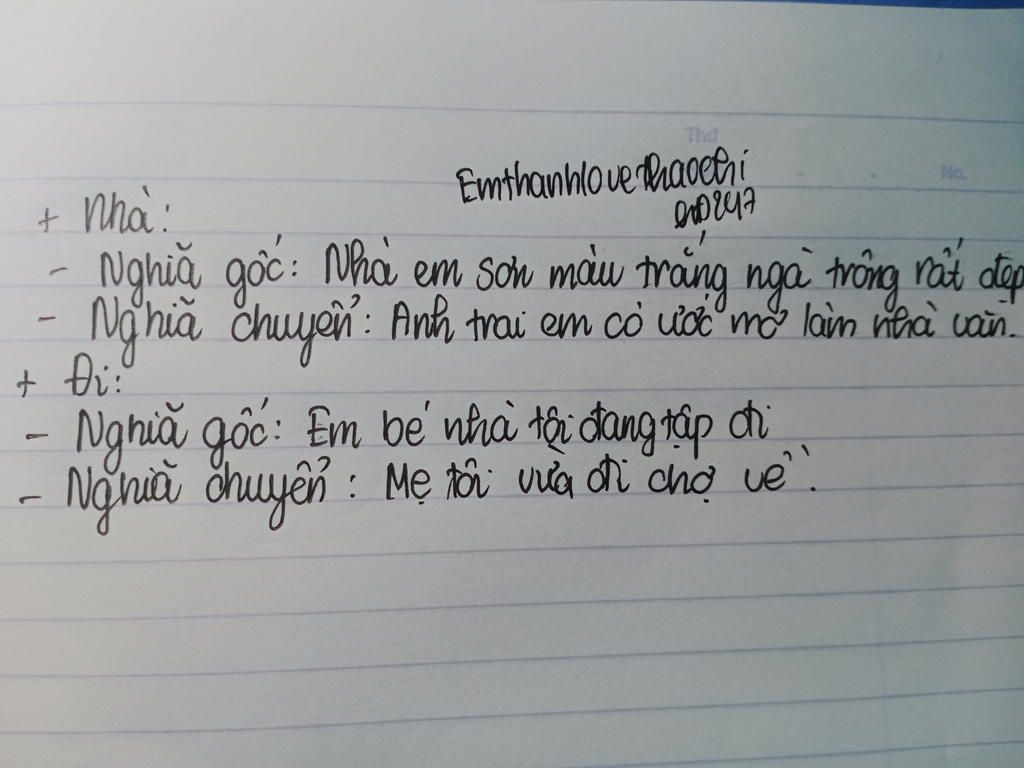 Thứ
No.
Emthanhlovethaoethi
+ Nhà:
- Nghĩă gốc: Nhà em sơn màu trắng ngà trông rất đẹp
- Nghĩă chuyển: Anh trai em có ước mơ làm nhà văn.
+ Đi:
- Nghĩă gốc: Em bé nhà tôi đang tập đi
- Nghĩă chuyển: Mẹ tôi vừa đi chợ về.